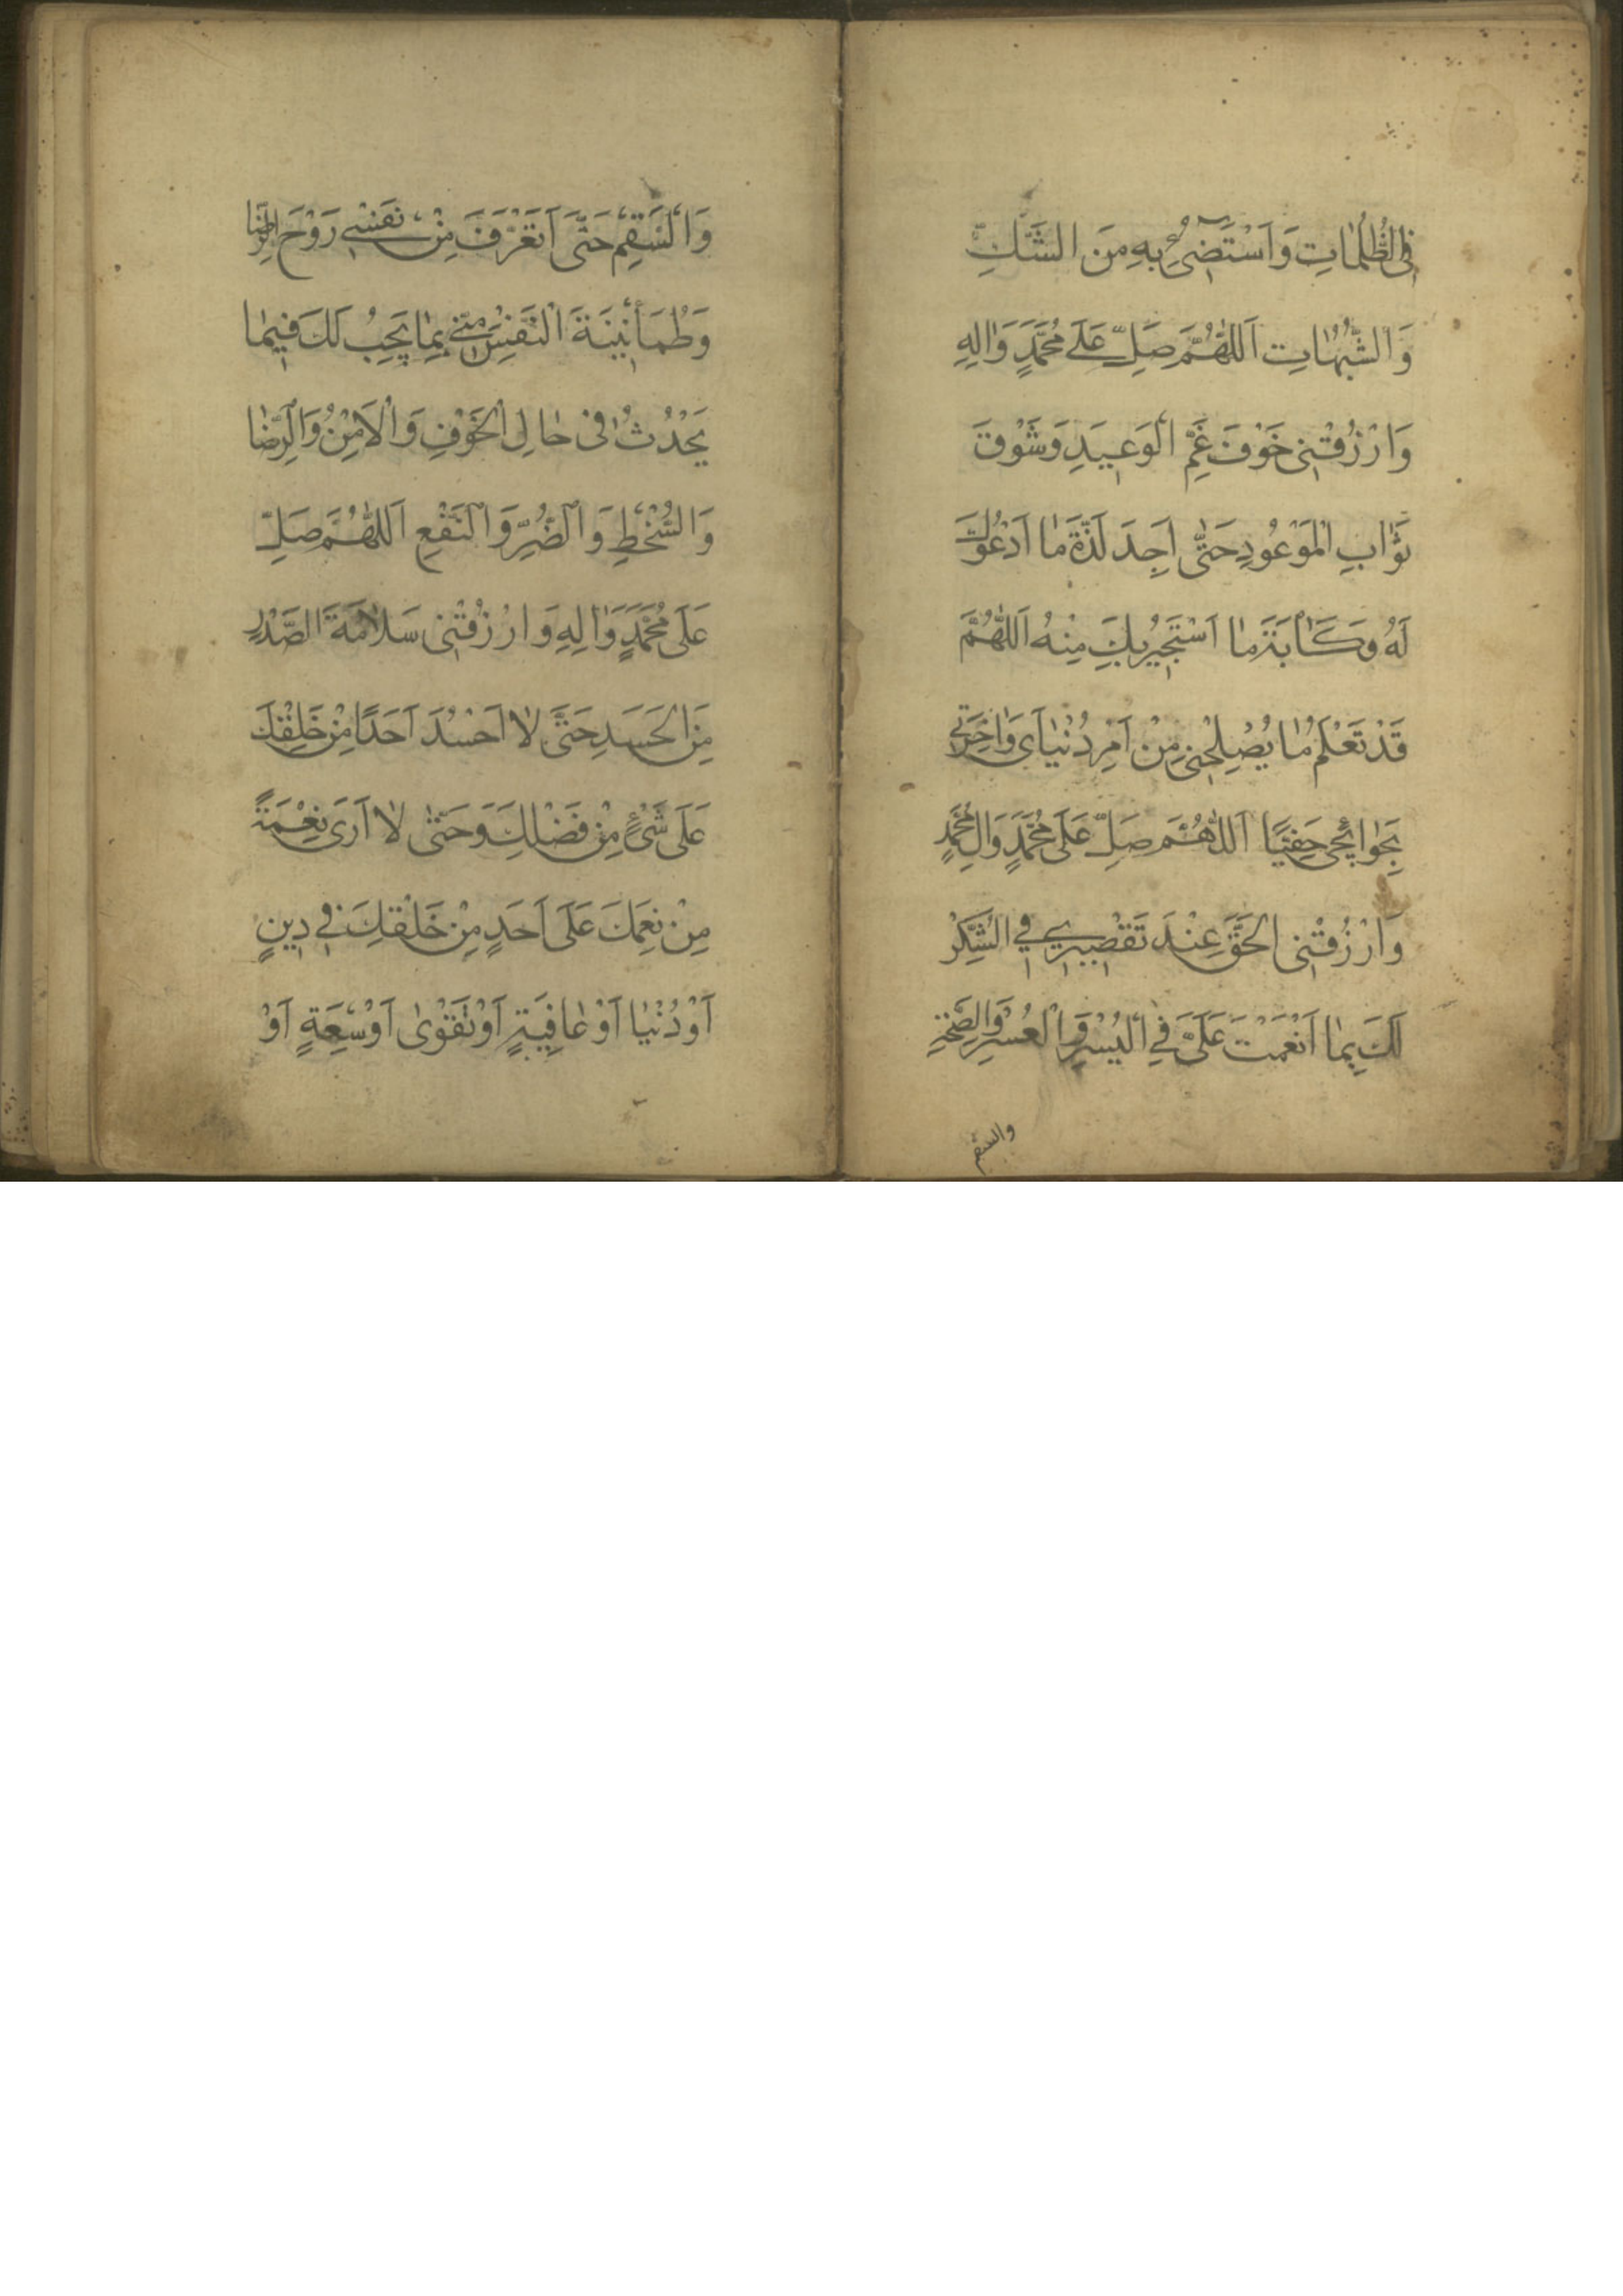 فِي الظُّلُمَاتِ وَاَسْتَضِيءُ بِهِ مِنَ الشَّكِّ
وَالشُّبُهَاتِ اَللّٰهُمَّ صَلِّ عَلَى مُحَمَّدٍ وَاٰلِهِ
وَارْزُقْنِي خَوْفَ غَمِّ الْوَعِيدِ وَشَوْقَ
ثَوَابِ الْمَوْعُودِ حَتّٰى اَجِدَ لَذَّةَ مَا اَدْعُوكَ
لَهُ وَكَاٰبَةَ مَا اَسْتَجِيرُ بِكَ مِنْهُ اَللّٰهُمَّ
قَدْ تَعْلَمُ مَا يُصْلِحُنِي مِنْ اَمْرِ دُنْيَايَ وَاٰخِرَتِي
بِحَوَائِجِي حَفِيًّا اَللّٰهُمَّ صَلِّ عَلَى مُحَمَّدٍ وَاٰلِ مُحَمَّدٍ
وَارْزُقْنِي الْحَقَّ عِنْدَ تَقْصِيرِي فِي الشُّكْرِ
لَكَ بِمَا اَنْعَمْتَ عَلَيَّ فِي الْيُسْرِ وَالْعُسْرِ وَالصِّحَّةِ
والسقم
وَالسَّقَمِ حَتَّى اَتَعَرَّفَ مِنْ نَفْسِي رَوْحَ الرِّضَا
وَطُمَأْنِينَةَ النَّفْسِ مِنِّي بِمَا يَجِبُ لَكَ فِيمَا
يَحْدُثُ فِي حَالِ الْخَوْفِ وَالْاَمْنِ وَالرِّضَا
وَالسُّخْطِ وَالضُّرِّ وَالنَّفْعِ اَللّٰهُمَّ صَلِّ
عَلَى مُحَمَّدٍ وَاٰلِهِ وَارْزُقْنِي سَلَامَةَ الصَّدْرِ
مِنَ الْحَسَدِ حَتَّى لَا اَحْسُدَ اَحَدًا مِنْ خَلْقِكَ
عَلَى شَيْءٍ مِنْ فَضْلِكَ وَحَتّٰى لَا اَرَى نِعْمَةً
مِنْ نِعَمِكَ عَلَى اَحَدٍ مِنْ خَلْقِكَ فِي دِينٍ
اَوْ دُنْيَا اَوْ عَافِيَةٍ اَوْ تَقْوٰى اَوْ سَعَةٍ اَوْ